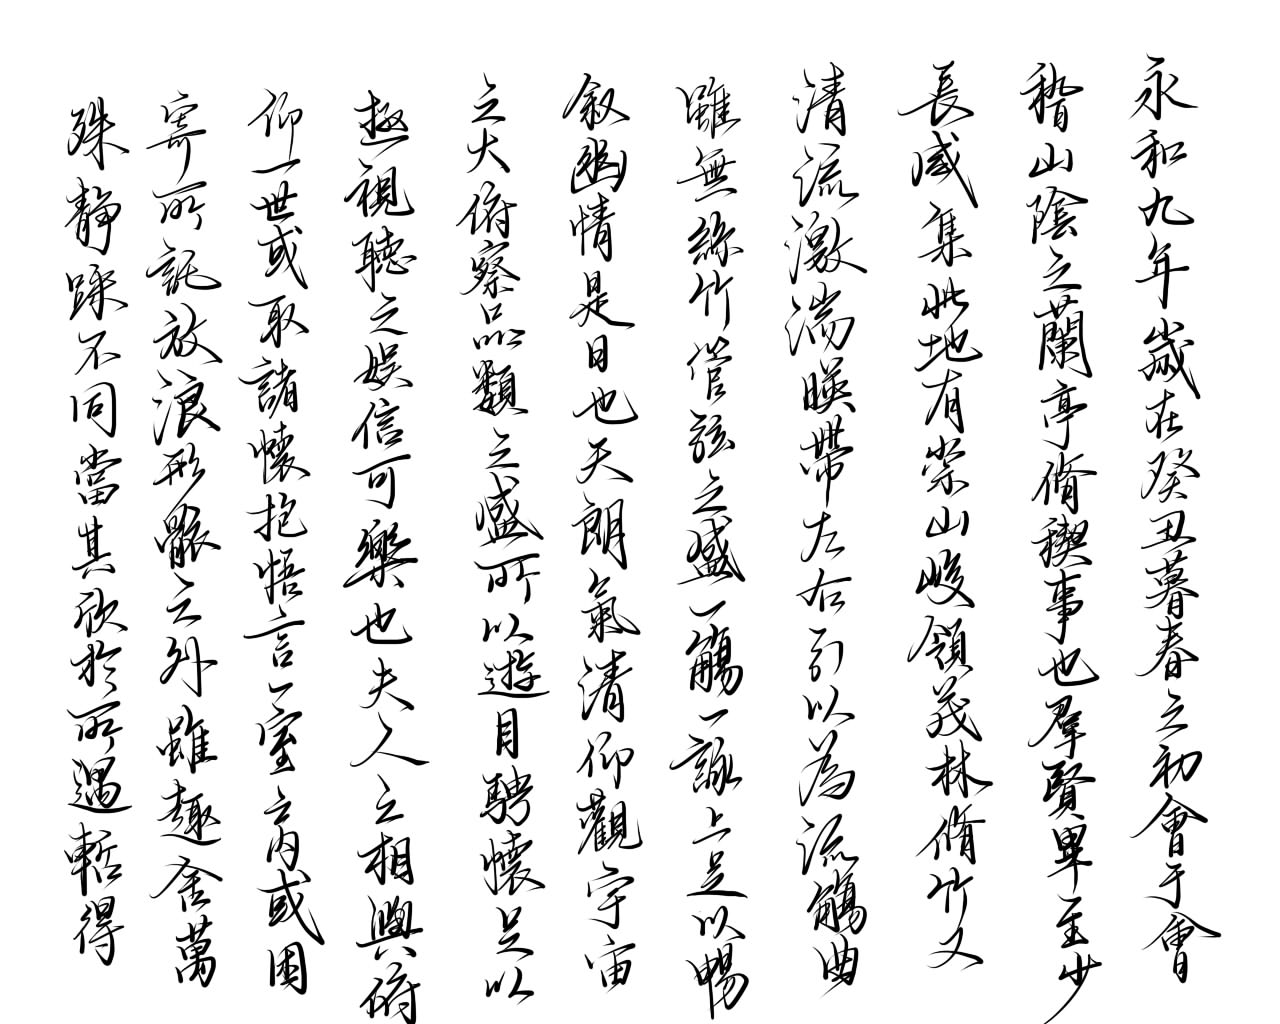 永和九年歲在癸丑暮春之初會于會
稽山陰之蘭亭脩稧事也羣賢畢至少
長咸集此地有崇山峻領茂林脩竹又
清流激湍暎帶左右引以為流觴曲
雖無絲竹管弦之盛一觴一詠上足以暢
敘幽情是日也天朗氣清仰觀宇宙
之大俯察品類之盛所以遊目騁懷足以
極視聽之娛信可樂也夫人之相與俯
仰一世或取諸懷抱悟言一室之內或因
寄所託放浪形骸之外雖趣舍萬
殊靜躁不同當其欣於所遇暫得